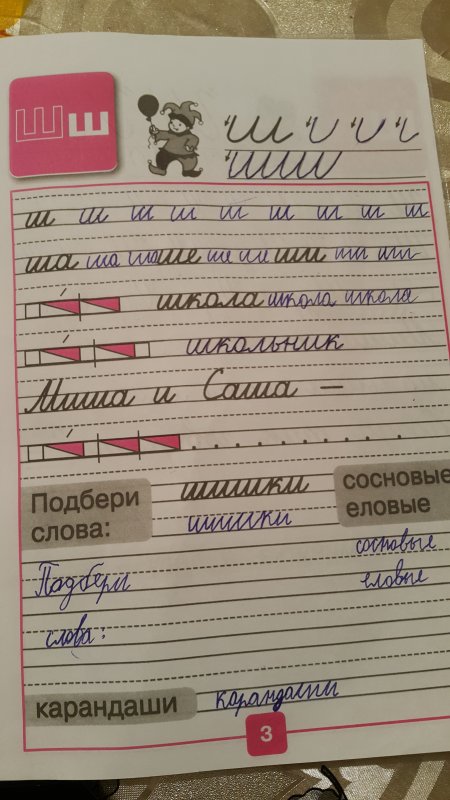 Ш ш
ш и и и
шши
ш ш ш ш ш ш ш ш ш
ша ша ша ше ше ше ши ши ши
школа школа школа
школьник
Миша и Саша —
Подбери слова:
шишки
шишки
сосновые
еловые
сосновые
Подбери
еловые
слова:
карандаши
карандаши
3